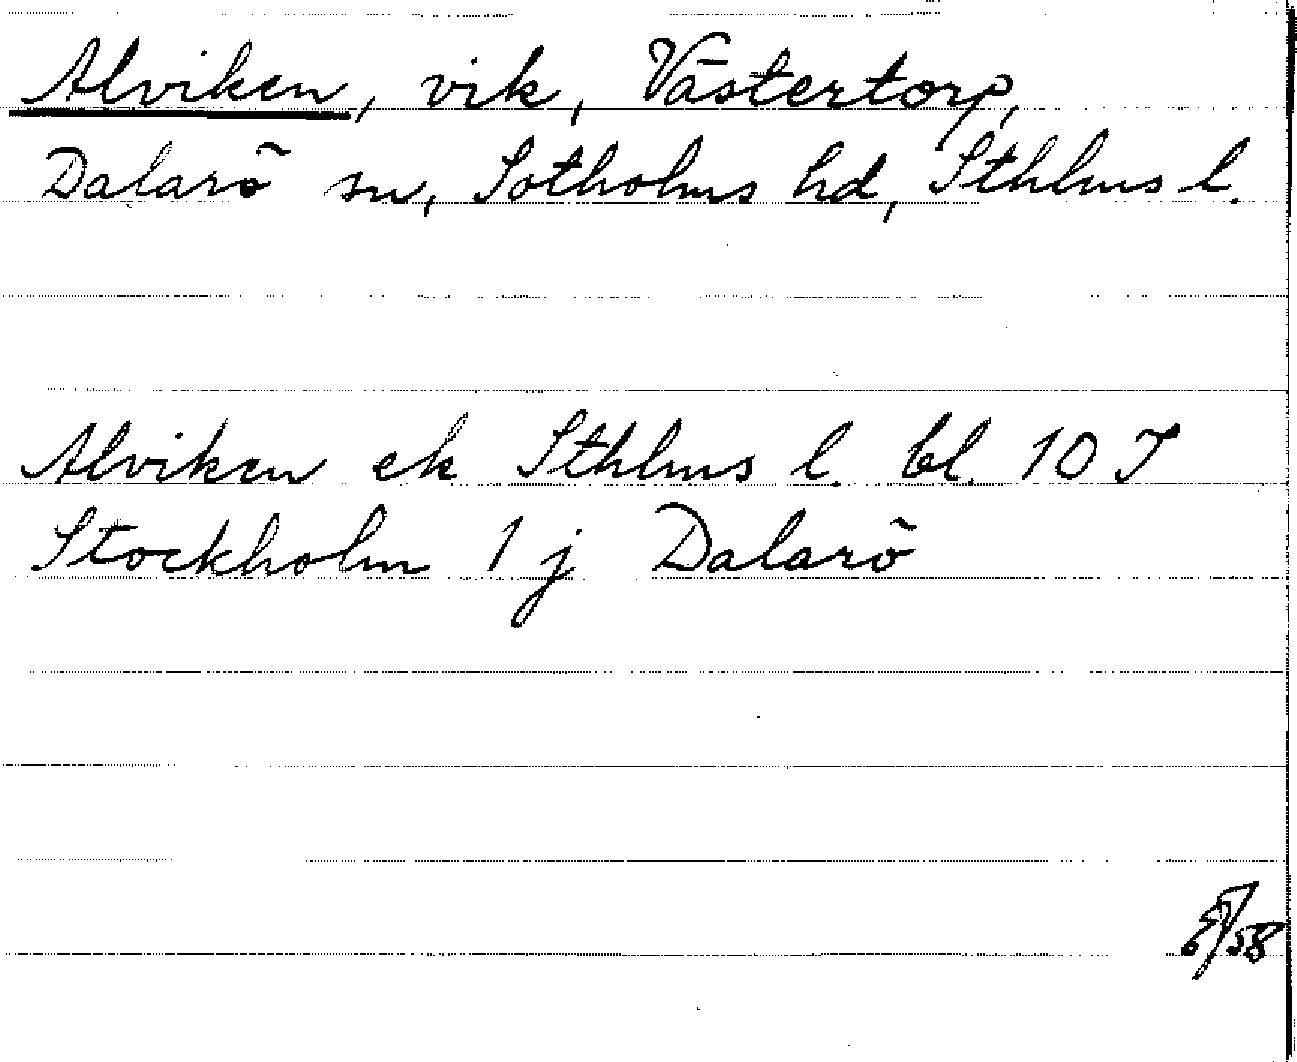 Alviken, vik, Västertorp,
Dalarö sn, Sotholms hd, Sthlms l.
Alviken ek Sthlms l. bl. 10 I
Stockholm 1 j Dalarö